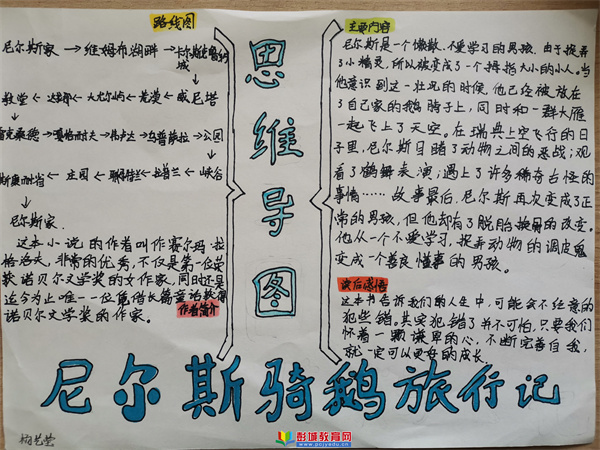 路线图
尼尔斯家→维姆布湖畔→卡尔斯克鲁纳
城
教堂←达拉那←大尤尔屿←荒漠←威尼塔
克桑德→嘎伯耐夫→韦卢达→乌普萨拉→公园
斯康耐省←庄园←←拉普兰←峡谷
尼尔斯家
这本小说的作者叫作赛尔玛·拉
格洛夫,非常的优秀,不仅是第一位获
获诺贝尔文学奖的女作家,同时还是
迄今为止唯一一位凭借长篇童话获得
诺贝尔文学奖的作家。
作者简介
思维导图
主要内容
尼尔斯是一个懒散、不爱学习的男孩,由于捉弄
了小精灵,所以被变成了一个拇指大小的小人。当
他意识到这一状况的时候,他已经被放在
了自家的鹅脖子上,同时和一群大雁
一起飞上了天空。在瑞典上空飞行的日
子里,尼尔斯目睹了动物之间的恶战;观
看了鹤舞表演;遇上了许多稀奇古怪的
事情……故事最后,尼尔斯再次变成了正
常的男孩,但他却有了脱胎换骨的改变。
他从一个不爱学习,捉弄动物的调皮鬼
变成一个善良懂事的男孩。
读后感悟
这本书告诉我们的人生中,可能会不经意的
犯些错。其实犯错了并不可怕,只要我们
怀着一颗谦卑的心,不断完善自我,
就一定可以更好的成长。
尼尔斯骑鹅旅行记
彭城教育网
www.pcjyedu.cn